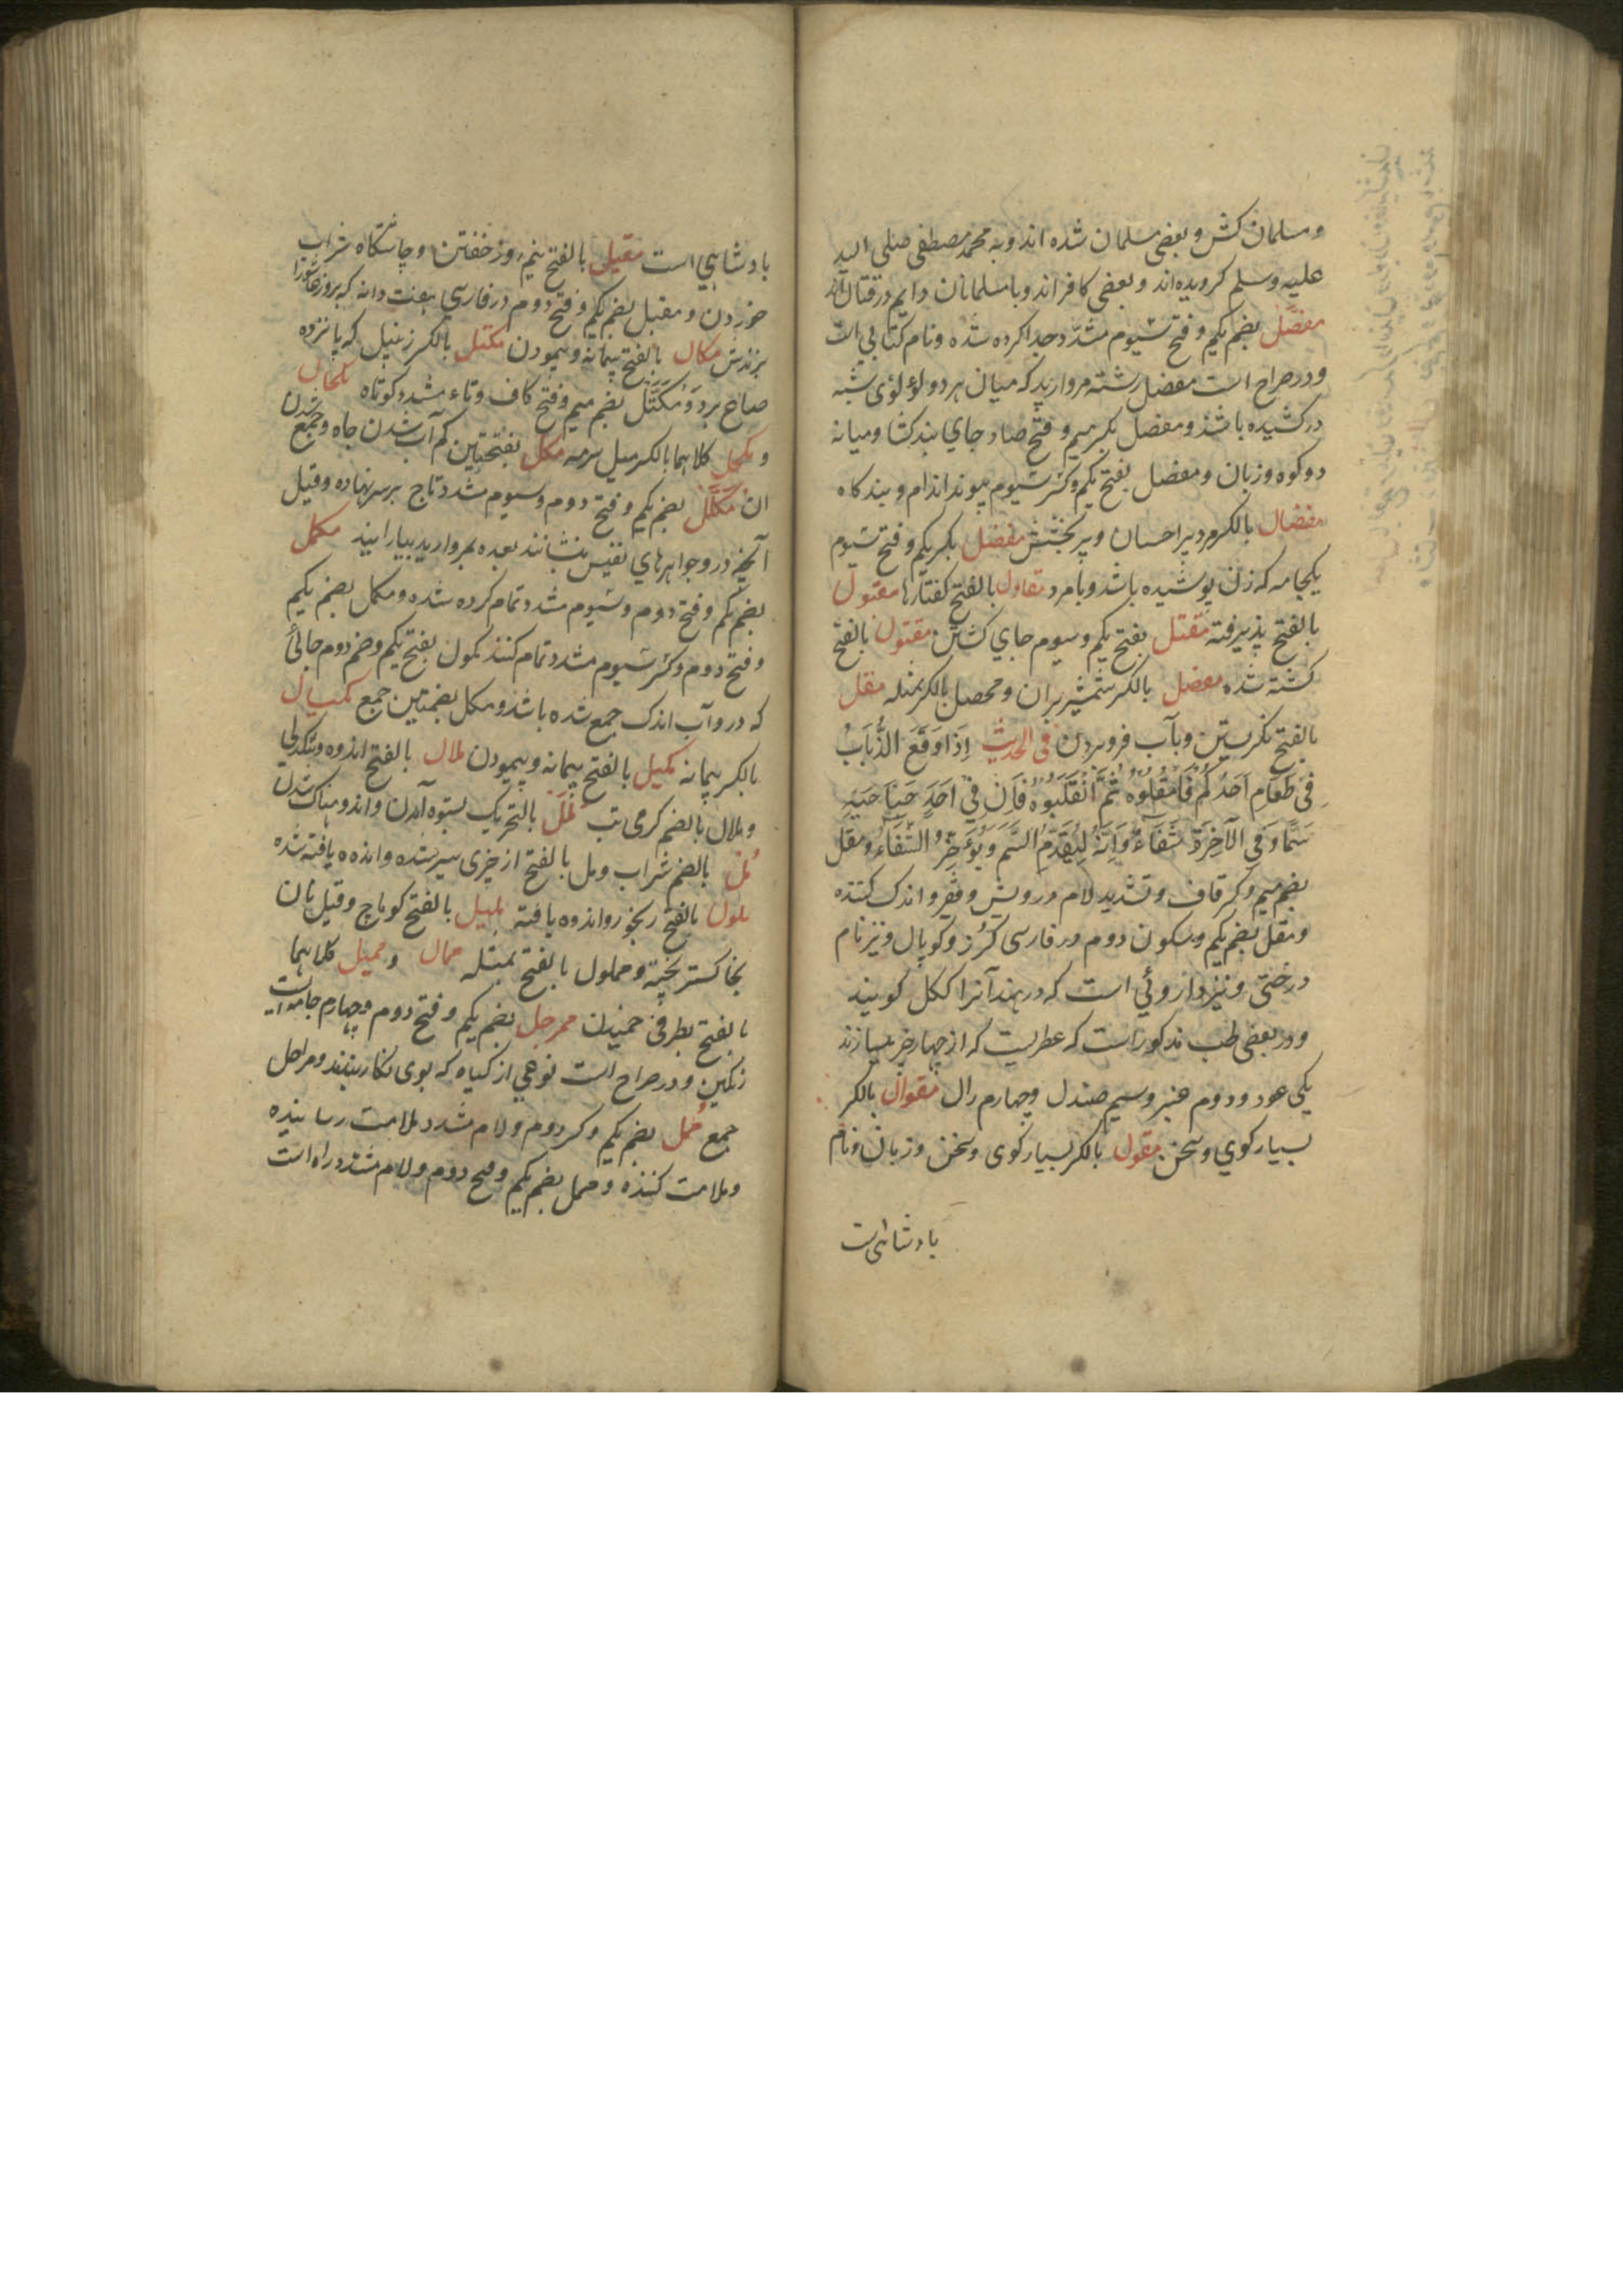 و مسلمان کش و بعضی مسلمان شده اند و به محمد مصطفی صلی الله
علیه وسلم کرویده اند و بعضی کافر اند و با مسلمانان دایم در قتال اند
مفصّل بضم یکم و فتح سیوم مشدد جدا کرده شده و نام کتابی است
و در صراح است مفصل رشته مروارید که میان هر دو لؤلؤی شبه
در کشیده باشد و مفصل بکسر میم و فتح صاد جای بند کشا و میانه
دو کوه و زبان و مفصل بفتح یکم و کسر سیوم پیوند اندام و بیند کاه
مفضال بالکسر مرد پر احسان و پر بخشش مفضل بکسر یکم و فتح سیوم
یکجامه که زن پوشیده باشد و بامرد مقاول بالفتح کفتارها مقبول
بالفتح پذیرفته مقتل بفتح یکم و سیوم جای کشتن مقتول بالفتح
کشته شده مفصل بالکسر شمشیر بران و محصل بالکسر مثله مقل
بالفتح نکریستن و بآب فرو بردن فی الحدیث اِذَا وَقَعَ الذُّبَابُ
فِی طَعَامِ اَحَدِکُم فَامقُلُوهُ ثُمَّ انْقُلَبُوهُ فَاِنَّ فِی اَحَدِ جَنَاحَیْهِ
سَمًّا وَ فِی الآخِرَةِ شِفَاءٌ وَ اِنَّهُ لَیُقَدِّمُ السَّمَّ وَ یُؤَخِّرُ الشِّفَاءَ و مقل
بضم میم و کسر قاف و تشدید لام درویش و فقیر و اندک کننده
و مقل بضم یکم و سکون دوم در فارسی کرز و کوپال و نیز نام
درختی و نیز داروئی است که در هند آنرا ککل کویند
و در بعضی طب مذکور است که عطریست که از چهار چیز میسازند
یکی عود و دوم عنبر و سیم صندل و چهارم رال مقوال بالکسر
بسیار کوی و سخن مقول بالکسر بسیار کوی و سخن و زبان و نام
بادشاهی است
بادشاهی است مقیل بالفتح نیم روز خفتن و چاشتکاه شراب
خوردن و مقبل بضم یکم و فتح دوم در فارسی هفت دانه که بروز عاشورا
بزندش مکال بالفتح پیمانه و پیمودن مکتل بالکسر زنبیل که پانزده
صاع برد و مکتّل بضم میم و فتح کاف و تاء مشدد کوتاه مکحال
و مکحل کلاهما بالکسر میل سرمه مکل بفتحتین کم آب شدن چاه و جمع شدن
ان مکلّل بضم یکم و فتح دوم و سیوم مشدد تاج بر سر نهاده و قیل
آنچه در و جواهرهای نفیس بنشانند بعده بمروارید بیارایند مکمل
بضم یکم و فتح دوم و سیوم مشدد تمام کرده شده و مکمل بضم یکم
و فتح دوم و کسر سیوم مشدد تمام کننده مکول بفتح یکم و ضم دوم جائی
که درو آب اندک جمع شده باشد و مکل بضمتین جمع مکیال
بالکسر پیمانه مکیل بالفتح پیمانه و پیمودن ملال بالفتح اندوه و تنکدلی
و ملال بالضم کرمی تب مَلَل بالتحریک بستوه آمدن و اندوهناک شدن
مُل بالضم شراب و مل بالفتح از چیزی سیر شده و اندوه یافته شده
ملول بالفتح رنجور و اندوه یافته ملیل بالفتح کوماج و قیل نان
بخاکستر پخته و مملول بالفتح بمثله ممال و ممیل کلاهما
بالفتح بطرفی خمیدن ممرجل بضم یکم و فتح دوم و چهارم جامه ایست
رنکین و در صراح است نوعی از کیاه که بوی نکار بندند و مراحل
جمع مُمل بضم یکم و کسر دوم و لام مشدد ملامت رساننده
و ملامت کننده و ممل بضم یکم و فتح دوم و لام مشدد راه است